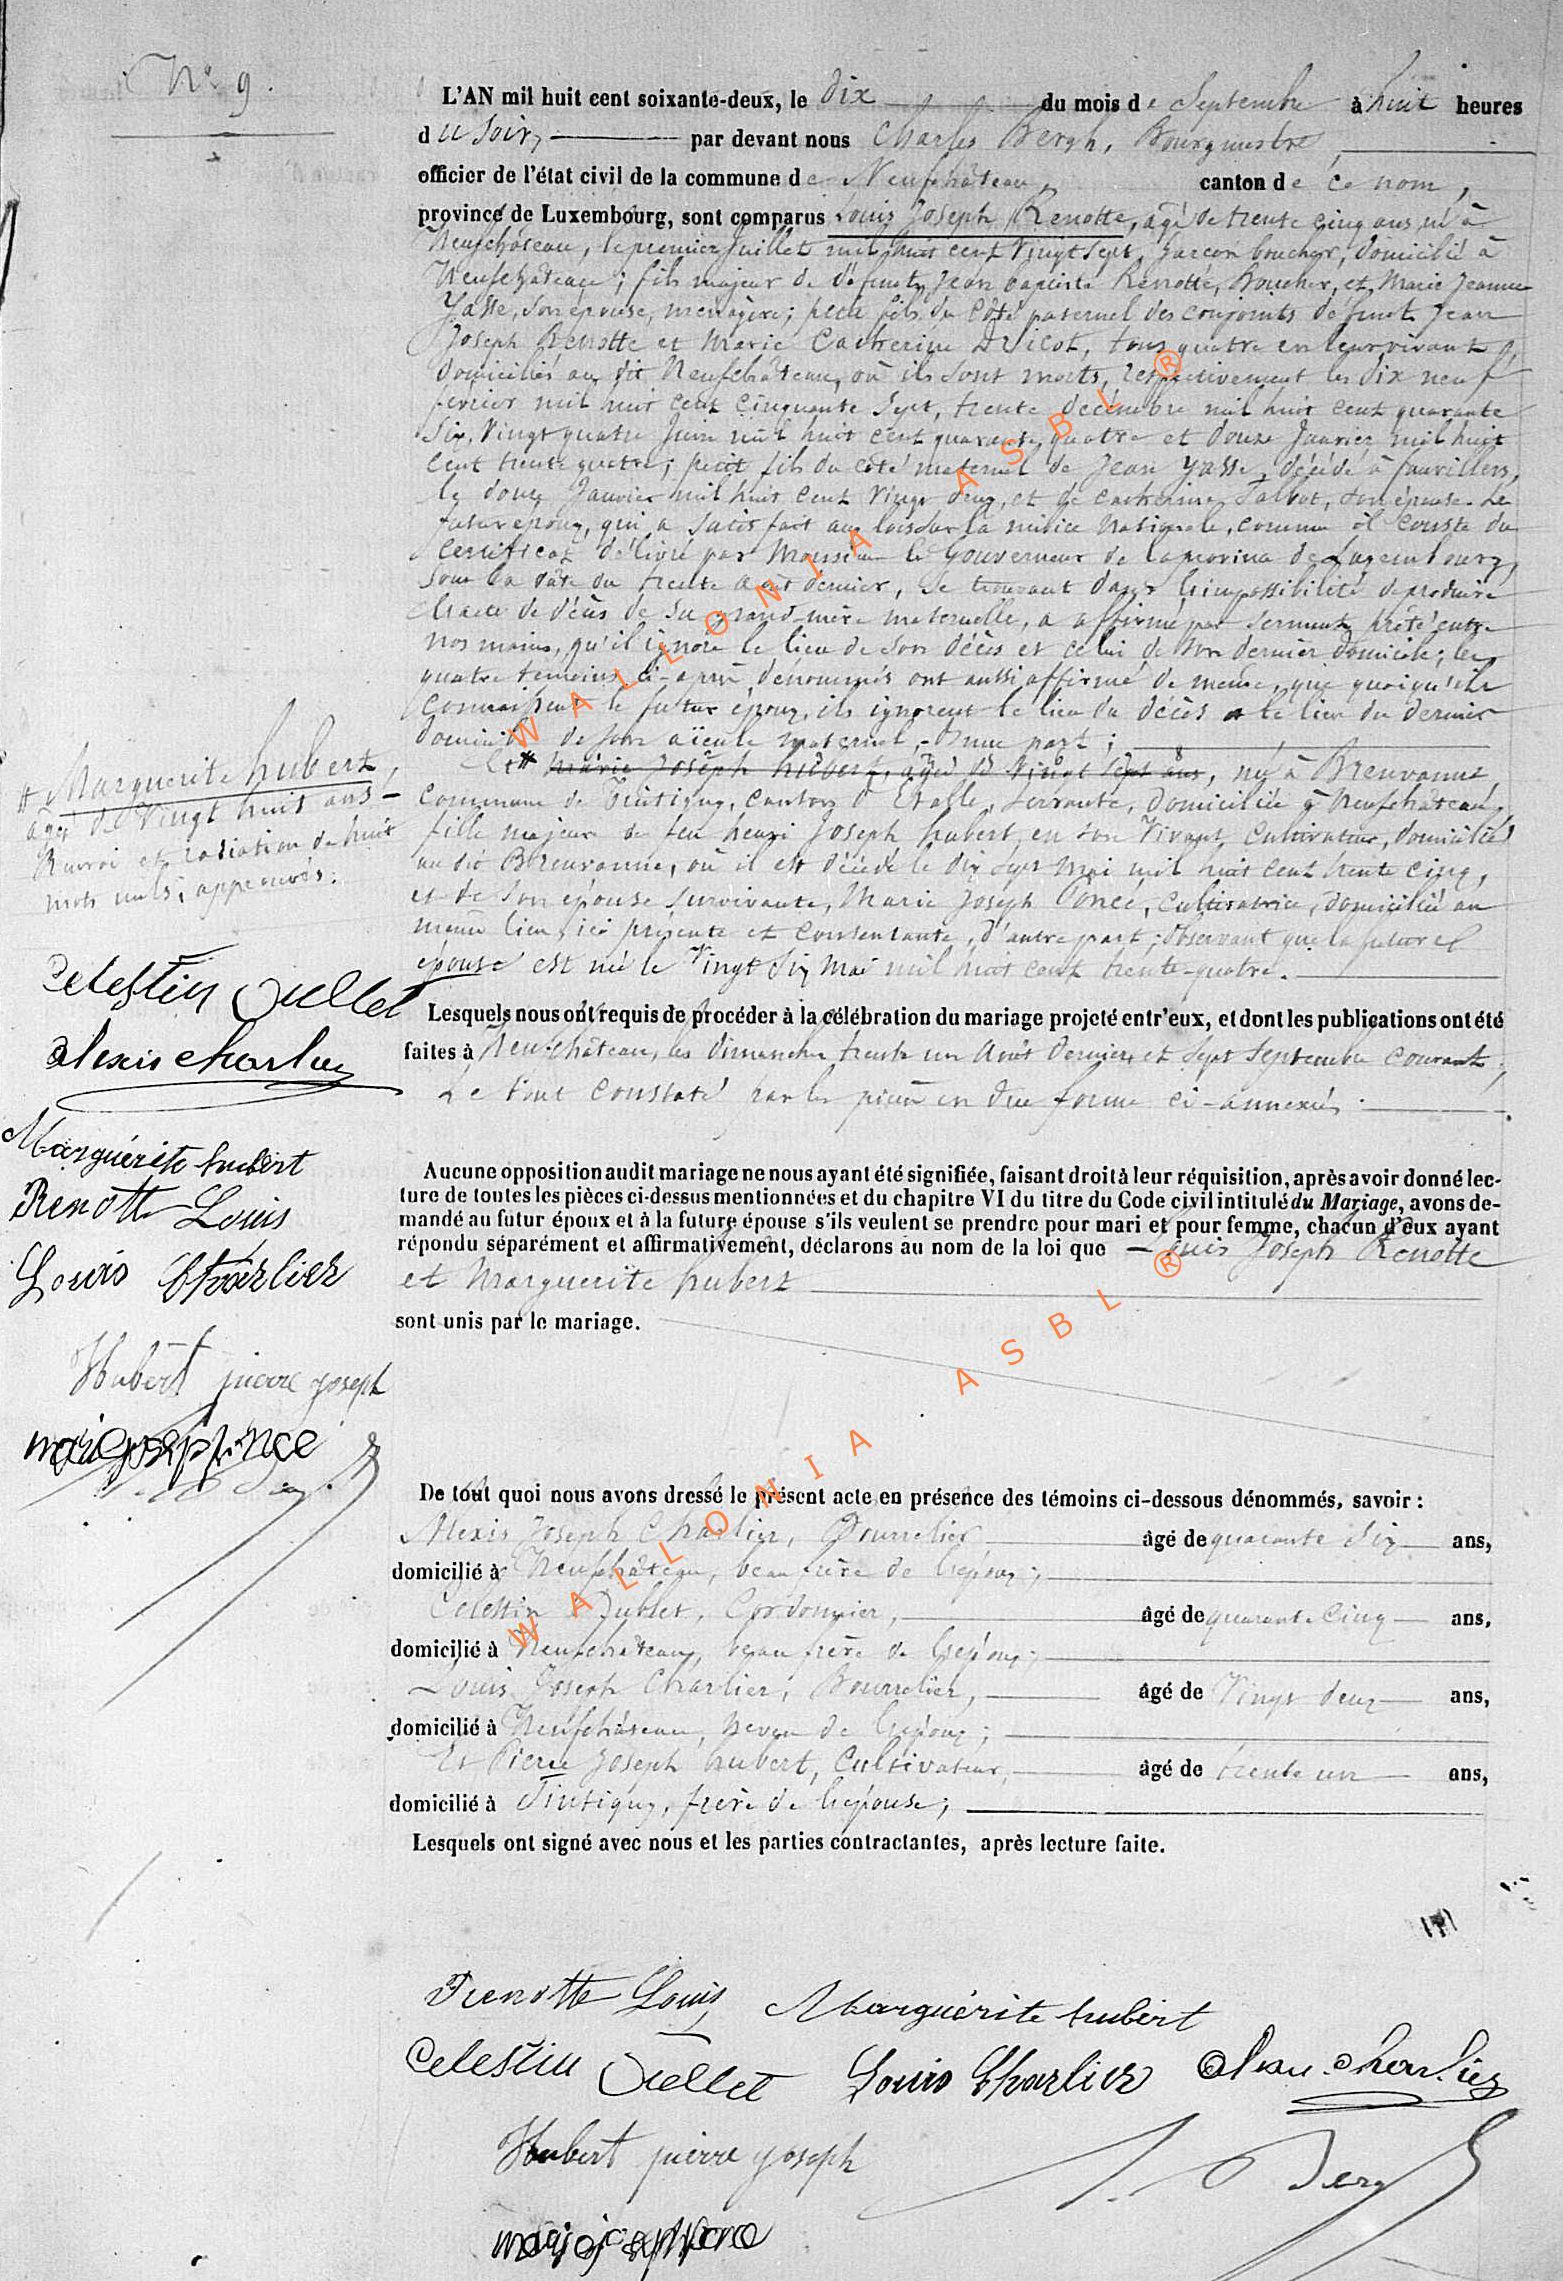 N° 9.
L'AN mil huit cent soixante-deux, le dix du mois de Septembre à huit heures
du soir, par devant nous Charles Bergh, Bourgmestre,
officier de l'état civil de la commune de Neufchâteau, canton de ce nom,
province de Luxembourg, sont comparus Louis Joseph Renotte, âgé de trente cinq ans, né à
Neufchâteau, le premier Juillet mil huit cent vingt sept, garçon boucher, domicilié à
Neufchâteau; fils majeur de défunts Jean baptiste Renotte, Boucher, et Marie Jeanne
Yasse, son épouse, ménagère; petit fils du côté paternel des conjoints défunts Jean
Joseph Renotte et Marie Catherine, tous quatre en leur vivant
domiciliés au dit Neufchâteau, où ils sont morts, respectivement les dix neuf
février mil huit cent cinquante sept, trente décembre mil huit cent quarante
six, vingt quatre Juin mil huit cent quarante quatre et douze Janvier mil huit
cent trente quatre; petit fils du côté maternel de Jean Yasse, décédé à fauvillers,
le douze Janvier mil huit cent vingt deux, et de catherine Talbot, son épouse. Le
futur époux, qui a satisfait aux lois sur la milice nationale, comme il conste du
certificat délivré par Monsieur le Gouverneur de la province de Luxembourg,
sous la date du trente août dernier, se trouvant dans l'impossibilité de produire
l'acte de décès de sa grand-mère maternelle, a affirmé par serment prêté entre
nos mains, qu'il ignore le lieu de son décès et celui de son dernier domicile; les
quatre témoins ci-après dénommés ont aussi affirmé de même, que quoiqu'ils
connaissent le futur époux, ils ignorent le lieu du décès et le lieu du dernier
domicile de son aïeule maternel, d'une part;
Et # Marie Joseph hubert, âgée de vingt sept ans, née à Breuvanne
commune de Tintigny, canton d'Etalle, servante, domiciliée à Neufchâteau,
fille majeure de feu henri Joseph hubert, en son vivant cultivateur, domicilié
au dit Breuvanne, où il est décédé le dix sept mai mil huit cent trente cinq,
et de son épouse survivante, Marie Joseph Poncé, cultivatrice, domiciliée au
même lieu, ici présente et consentante, d'autre part; Observant que la future
épouse est née le vingt six mai mil huit cent trente-quatre.
# Marguerite hubert,
âgée de vingt huit ans
Renvoi et radiation de huit
mots nuls, approuvés.
Celestin Jullet
alexis charlier
Marguérite hubert
Renotte Louis
Louis Charlier
Hubert pierre joseph
marie joseph ponce
Lesquels nous ont requis de procéder à la célébration du mariage projeté entr'eux, et dont les publications ont été
faites à Neufchâteau, les dimanches trente un Août dernier et sept Septembre courant,
Le tout constaté par les pièces en due forme ci-annexées.
Aucune opposition audit mariage ne nous ayant été signifiée, faisant droit à leur réquisition, après avoir donné lec-
ture de toutes les pièces ci-dessus mentionnées et du chapitre VI du titre du Code civil intitulé du Mariage, avons de-
mandé au futur époux et à la future épouse s'ils veulent se prendre pour mari et pour femme, chacun d'eux ayant
répondu séparément et affirmativement, déclarons au nom de la loi que Louis Joseph Renotte
et Marguerite hubert
sont unis par le mariage.
De tout quoi nous avons dressé le présent acte en présence des témoins ci-dessous dénommés, savoir :
Alexis Joseph Charlier, Bourrelier âgé de quarante six ans,
domicilié à Neufchâteau, beau frère de l'époux;
Celestin Jullet, Cordonnier, âgé de quarante cinq ans,
domicilié à Neufchâteau, beau frère de l'époux;
Louis Joseph Charlier, Bourrelier, âgé de vingt deux ans,
domicilié à Neufchâteau, neveu de l'époux;
Et Pierre Joseph hubert, Cultivateur, âgé de trente un ans,
domicilié à Tintigny, frère de l'épouse;
Lesquels ont signé avec nous et les parties contractantes, après lecture faite.
Renotte Louis Marguérite hubert
Celestin Jullet Louis Charlier alexis charlier
Hubert pierre joseph Bergh
marie joseph ponce
WALLONIA ASBL ®
WALLONIA ASBL ®